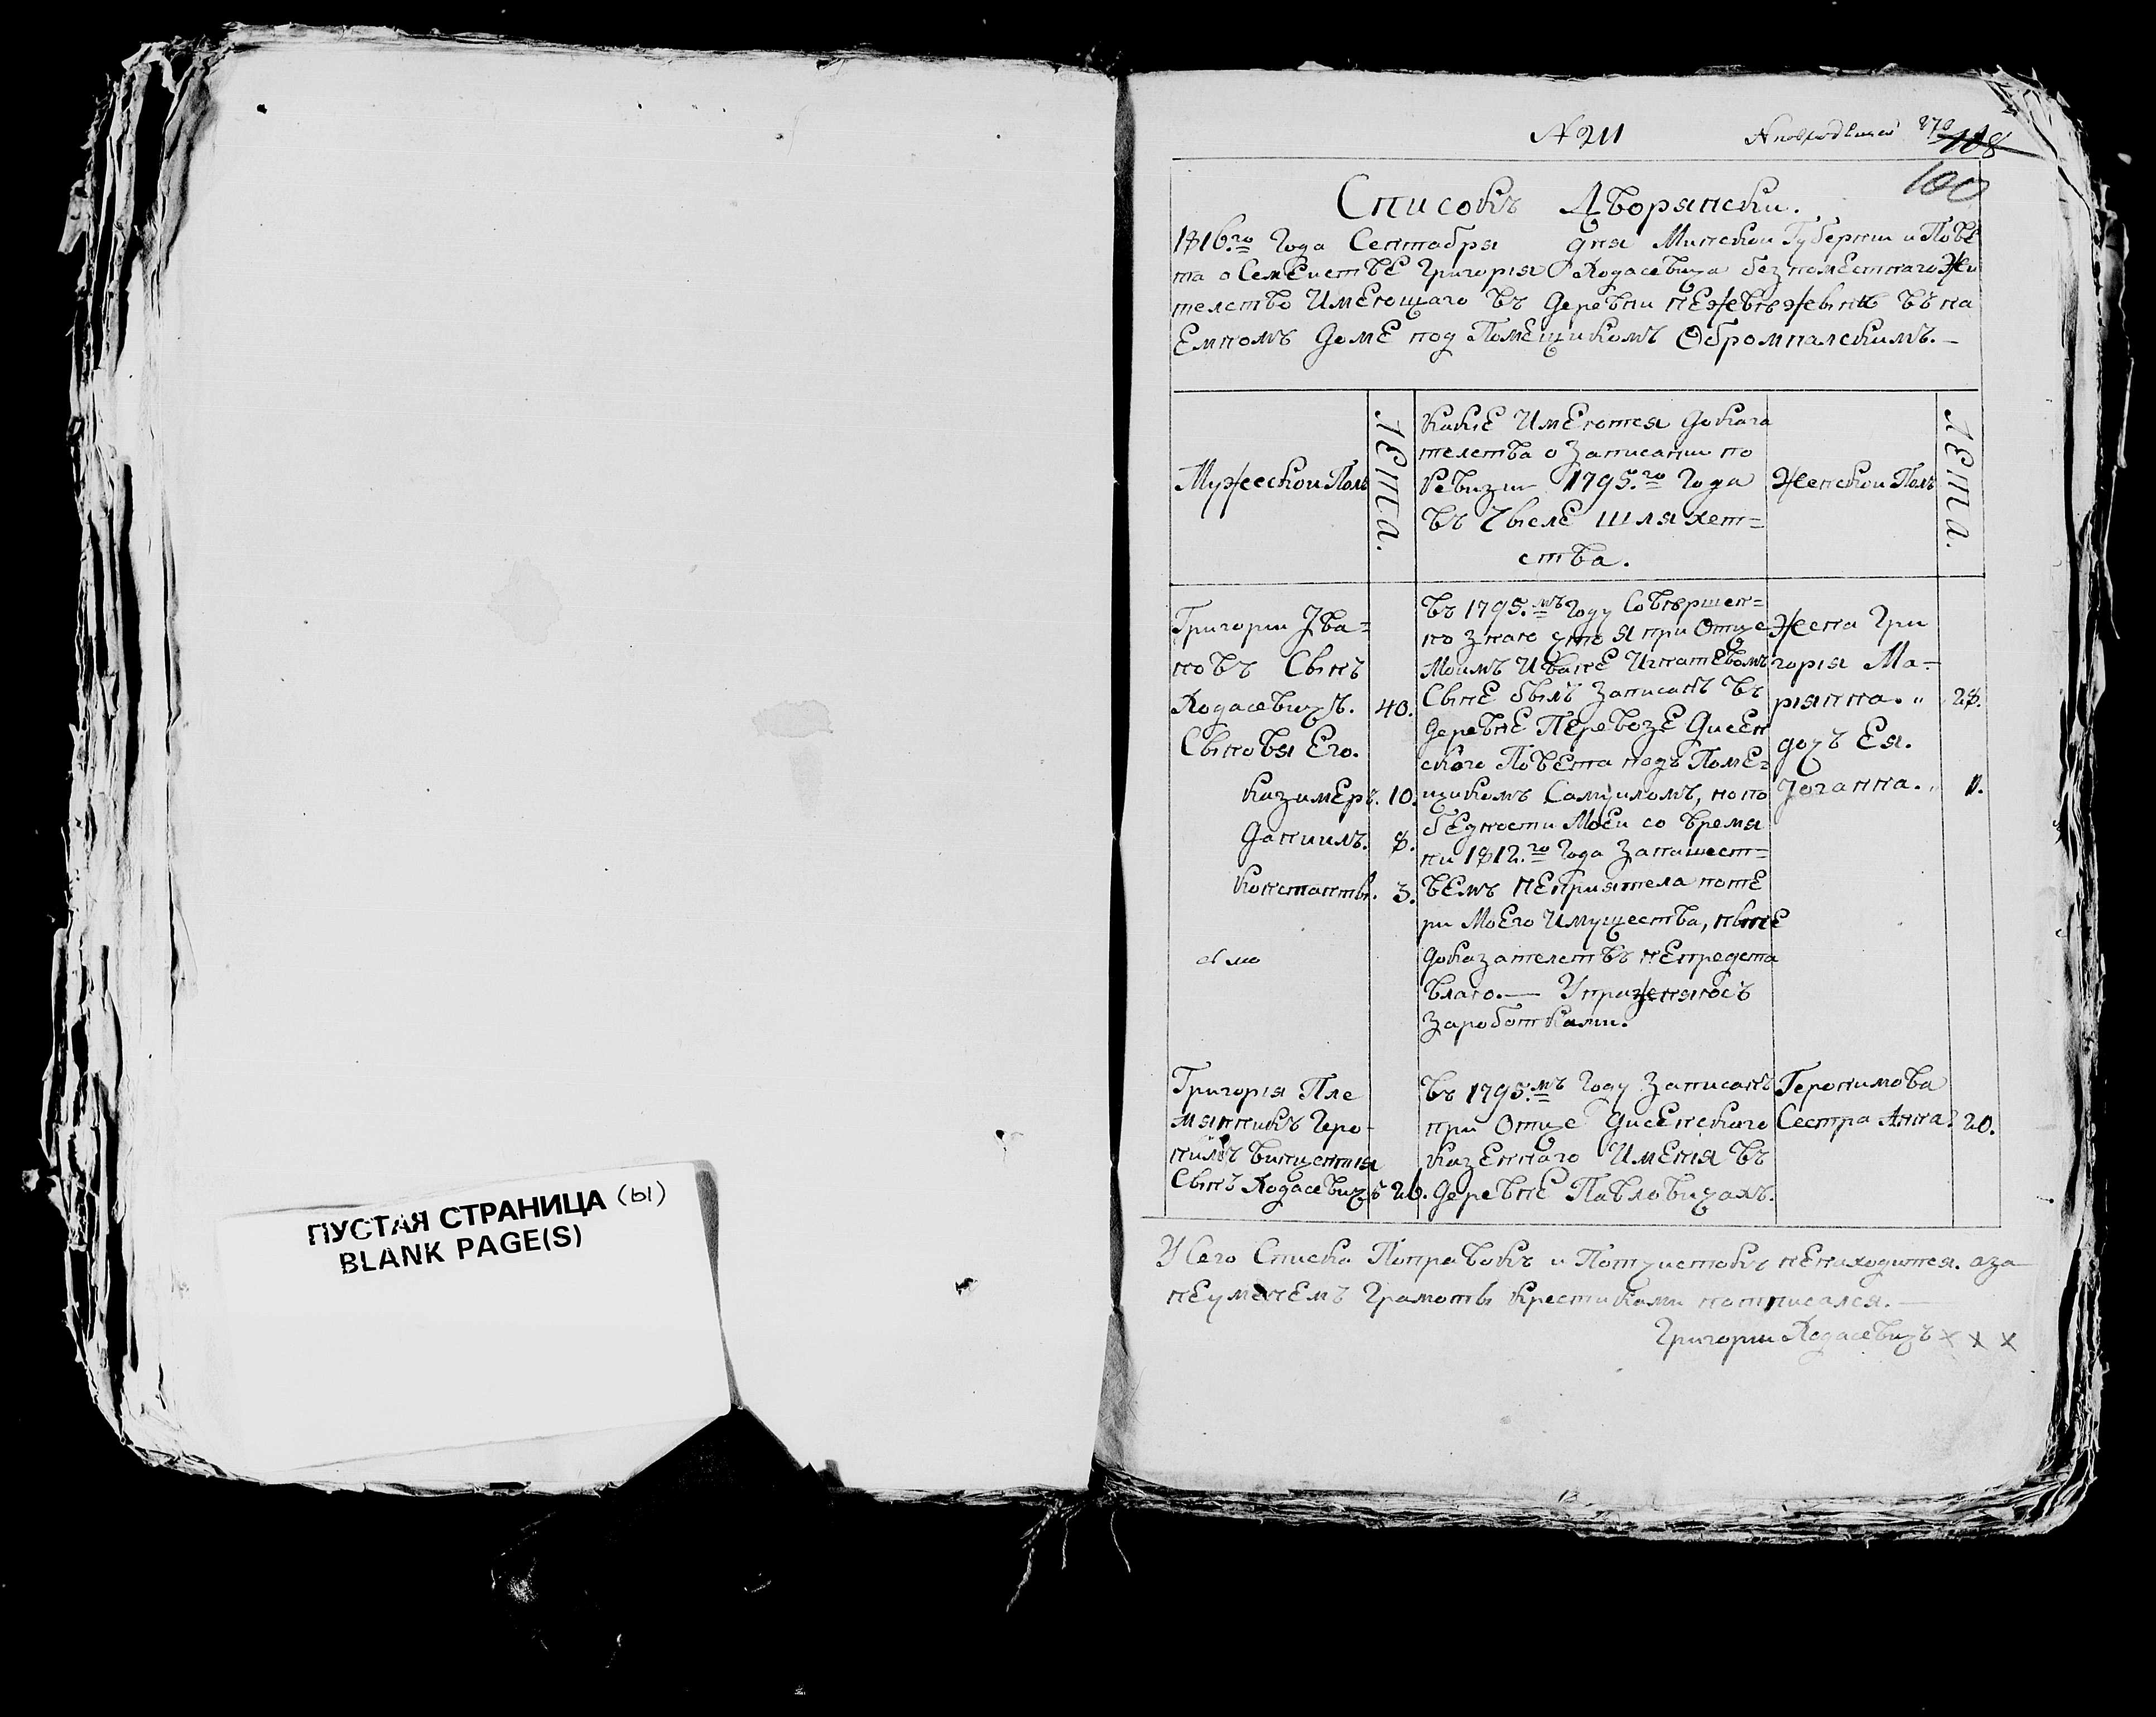 ПУСТАЯ СТРАНИЦА (ы)
BLANK PAGE(S)
№ 211
108
100
Списокъ Дворянски.
1816.го Года Сентабря дня Минскои Губернiи и Повѣ
та о Семеиствѣ Григорiя Ходасевича безпоместнаго Жи
телство Имеющаго въ деревни въ на
Емномъ доме под Помещикомъ Обромпалскимъ.—
Мужескои Полъ
Лета.
Какiе Имеются доказа
телства о Записанiи по
Ревизiи 1795.го Года
въ Числе шляхет=
ства.
Женскои Полъ
Лета.
Григорiи Iва=
новъ Сынъ
Ходасевичъ. 40.
Сыновья Его.
Казимеръ. 10.
Данiилъ. 8.
Константы. 3.
въ 1795.мъ Году Совершен=
но знаю что я при Отце
Моимъ Иване Игнатевомъ
Сыне былъ Записанъ въ
деревне Перевозе Дисен
ского Повета подъ Поме=
щикомъ Самуиломъ, но по
бедности Моеи со время
ни 1812.го Года Запашест=
вемъ Непрiятела поте
ри Моего Имущества, ныне
доказателствъ непредста
влаю.—
Заработками.
Жена Гри
горiя Ма=
рiянна. „ 28.
дочь Ея.
Iоганна. „ 1.
Григорiя Пле
мянникъ Геро
нимъ Винцентiя
Сынъ Ходасевичъ 26.
въ 1795.мъ Году Записанъ
при Отце Дисенскаго
Казеннаго Именiя въ
деревне Павловичахъ.
Геронимова
Сестра Анна. 20.
У Сего Списка Поправокъ и Потчистокъ ненаходится. аза
неуменемъ Грамоты Крестиками натписался.—
Григорiи Ходасевичъ х х х